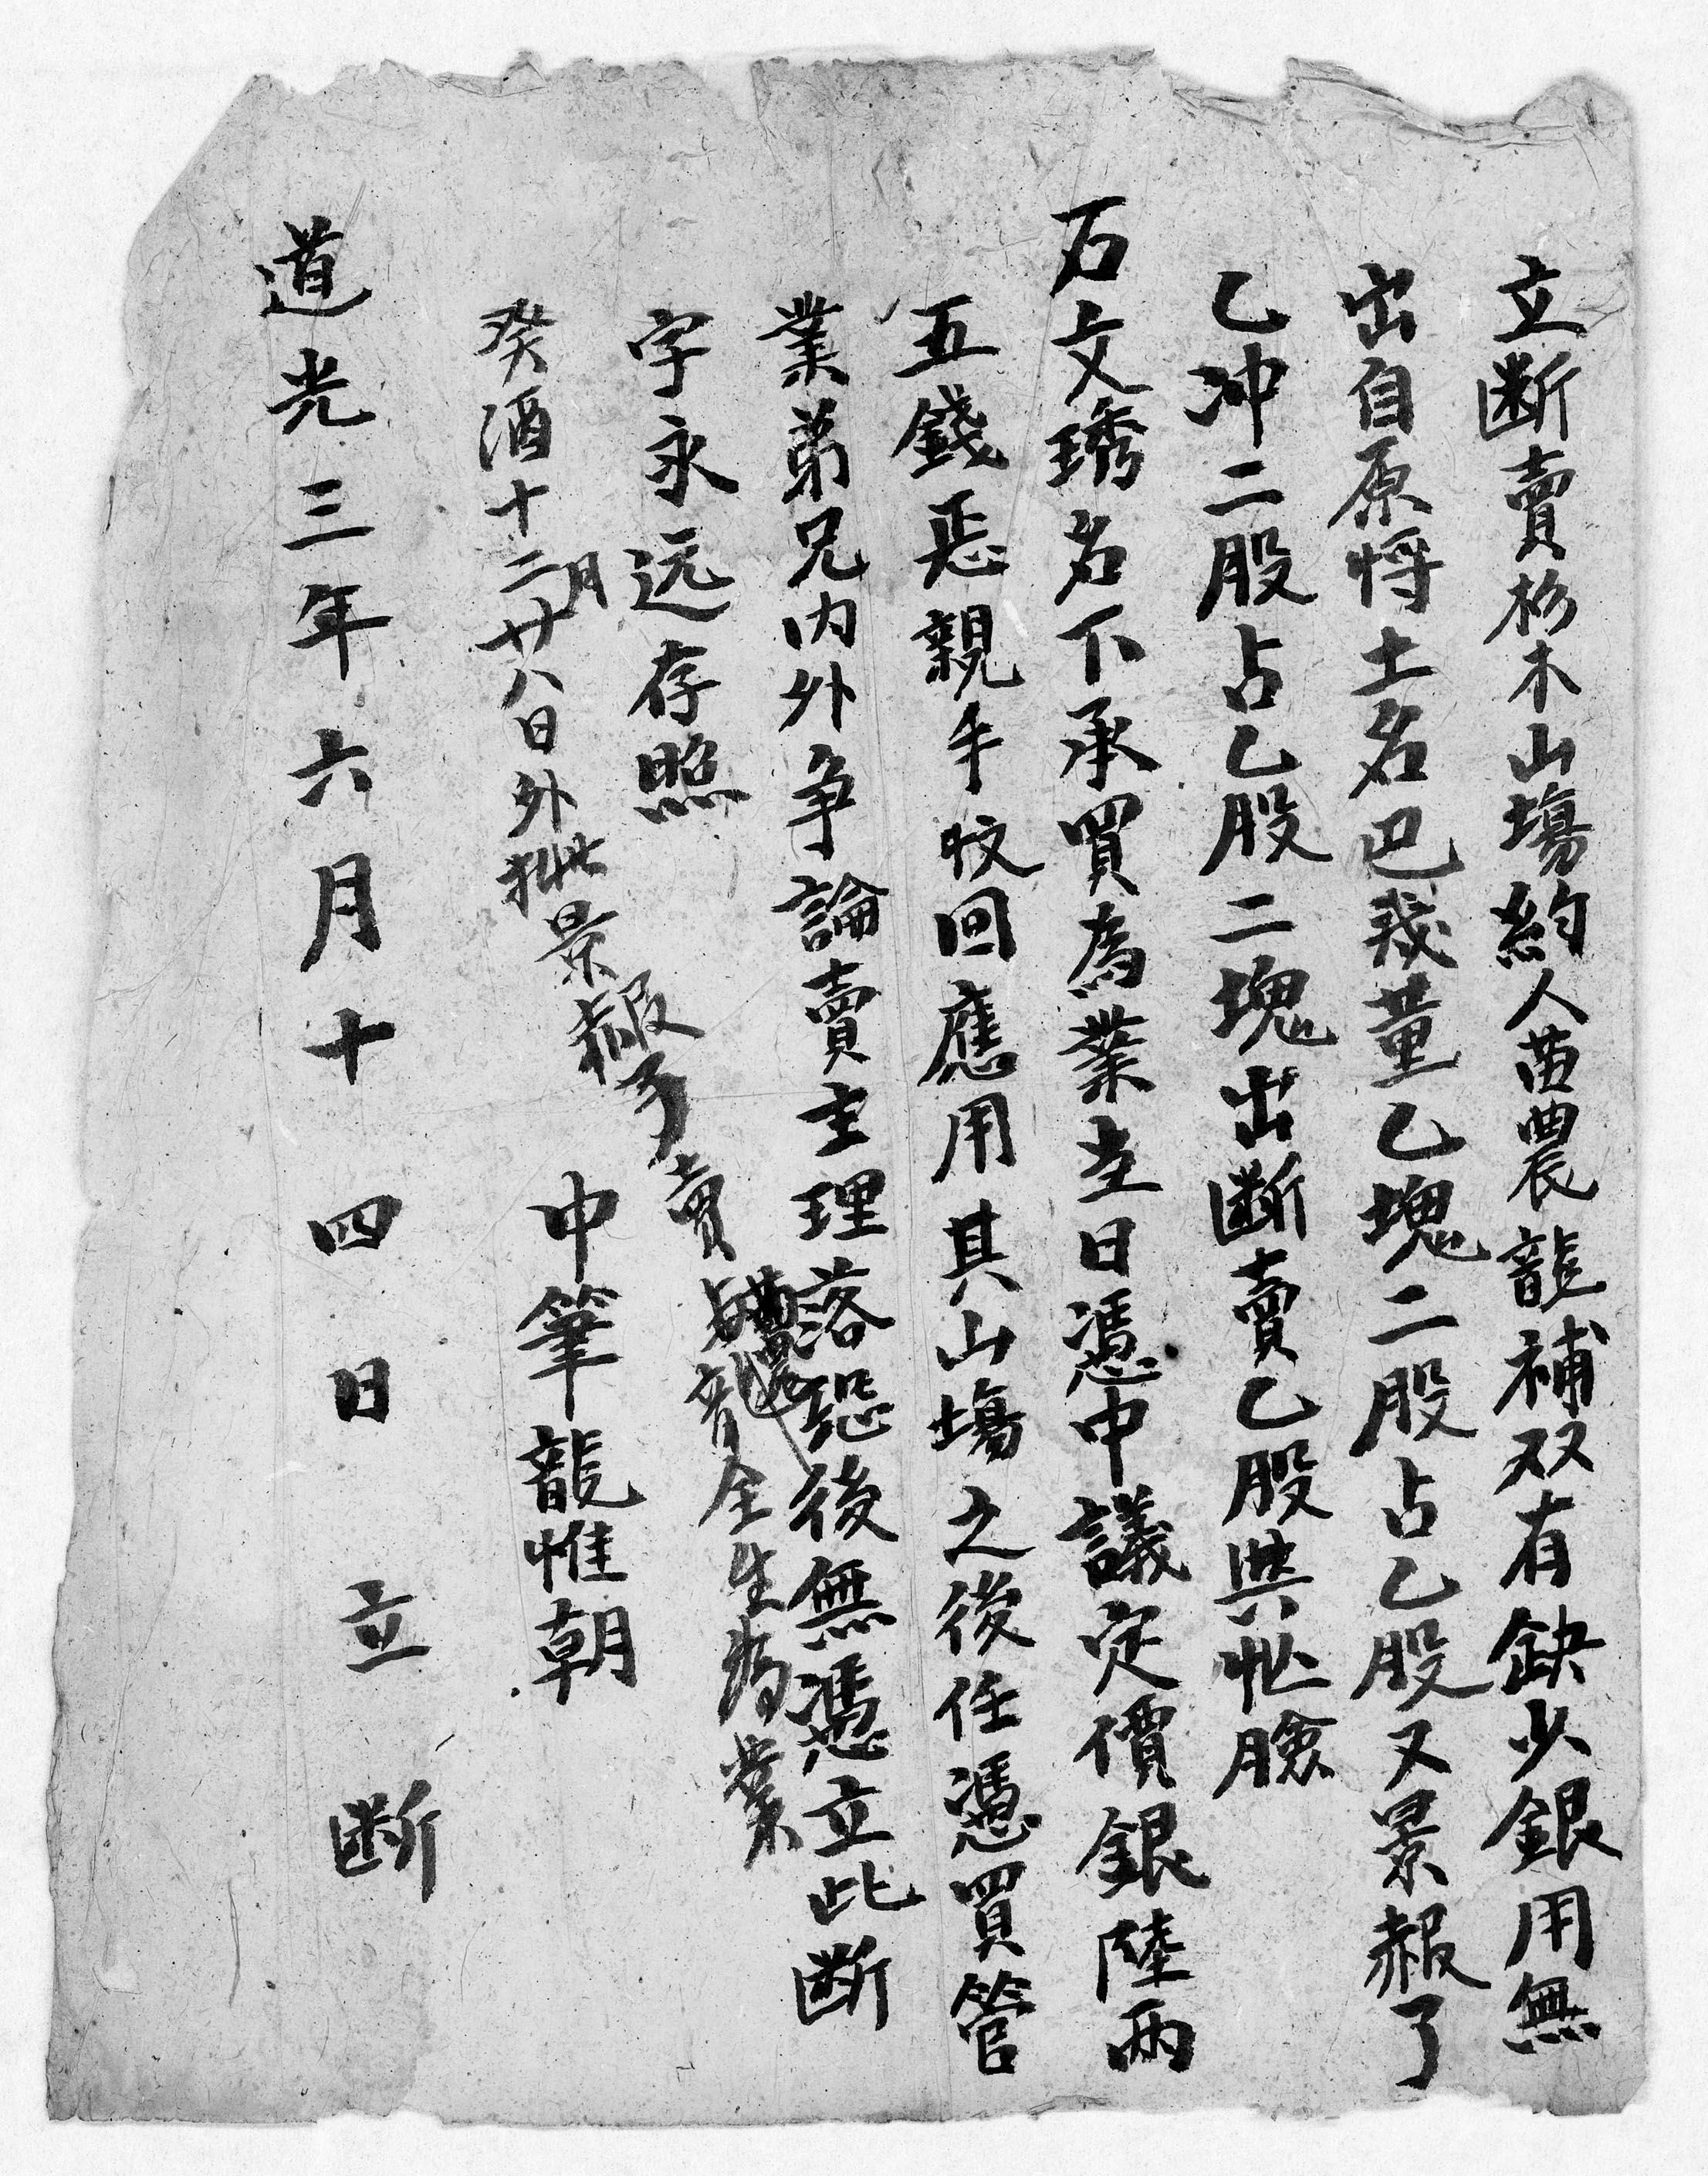 立断賣杉木山塲約人苗農龍補双有缺少銀用無
出自原将土名巴我董乙塊二股占乙股又景赧了
乙冲二股占乙股二塊出断賣乙股與忚臉
石文琇名下承買為業主日憑中議定價銀陸兩
五錢恁親手收回應用其山塲之後任憑買管
業弟兄内外争論賣主理落恐後無憑立此断
字永远存照
癸酒十二月廿八日外批景赧了賣與龍全生為業
中筆龍惟朝
道光三年六月十四日立断